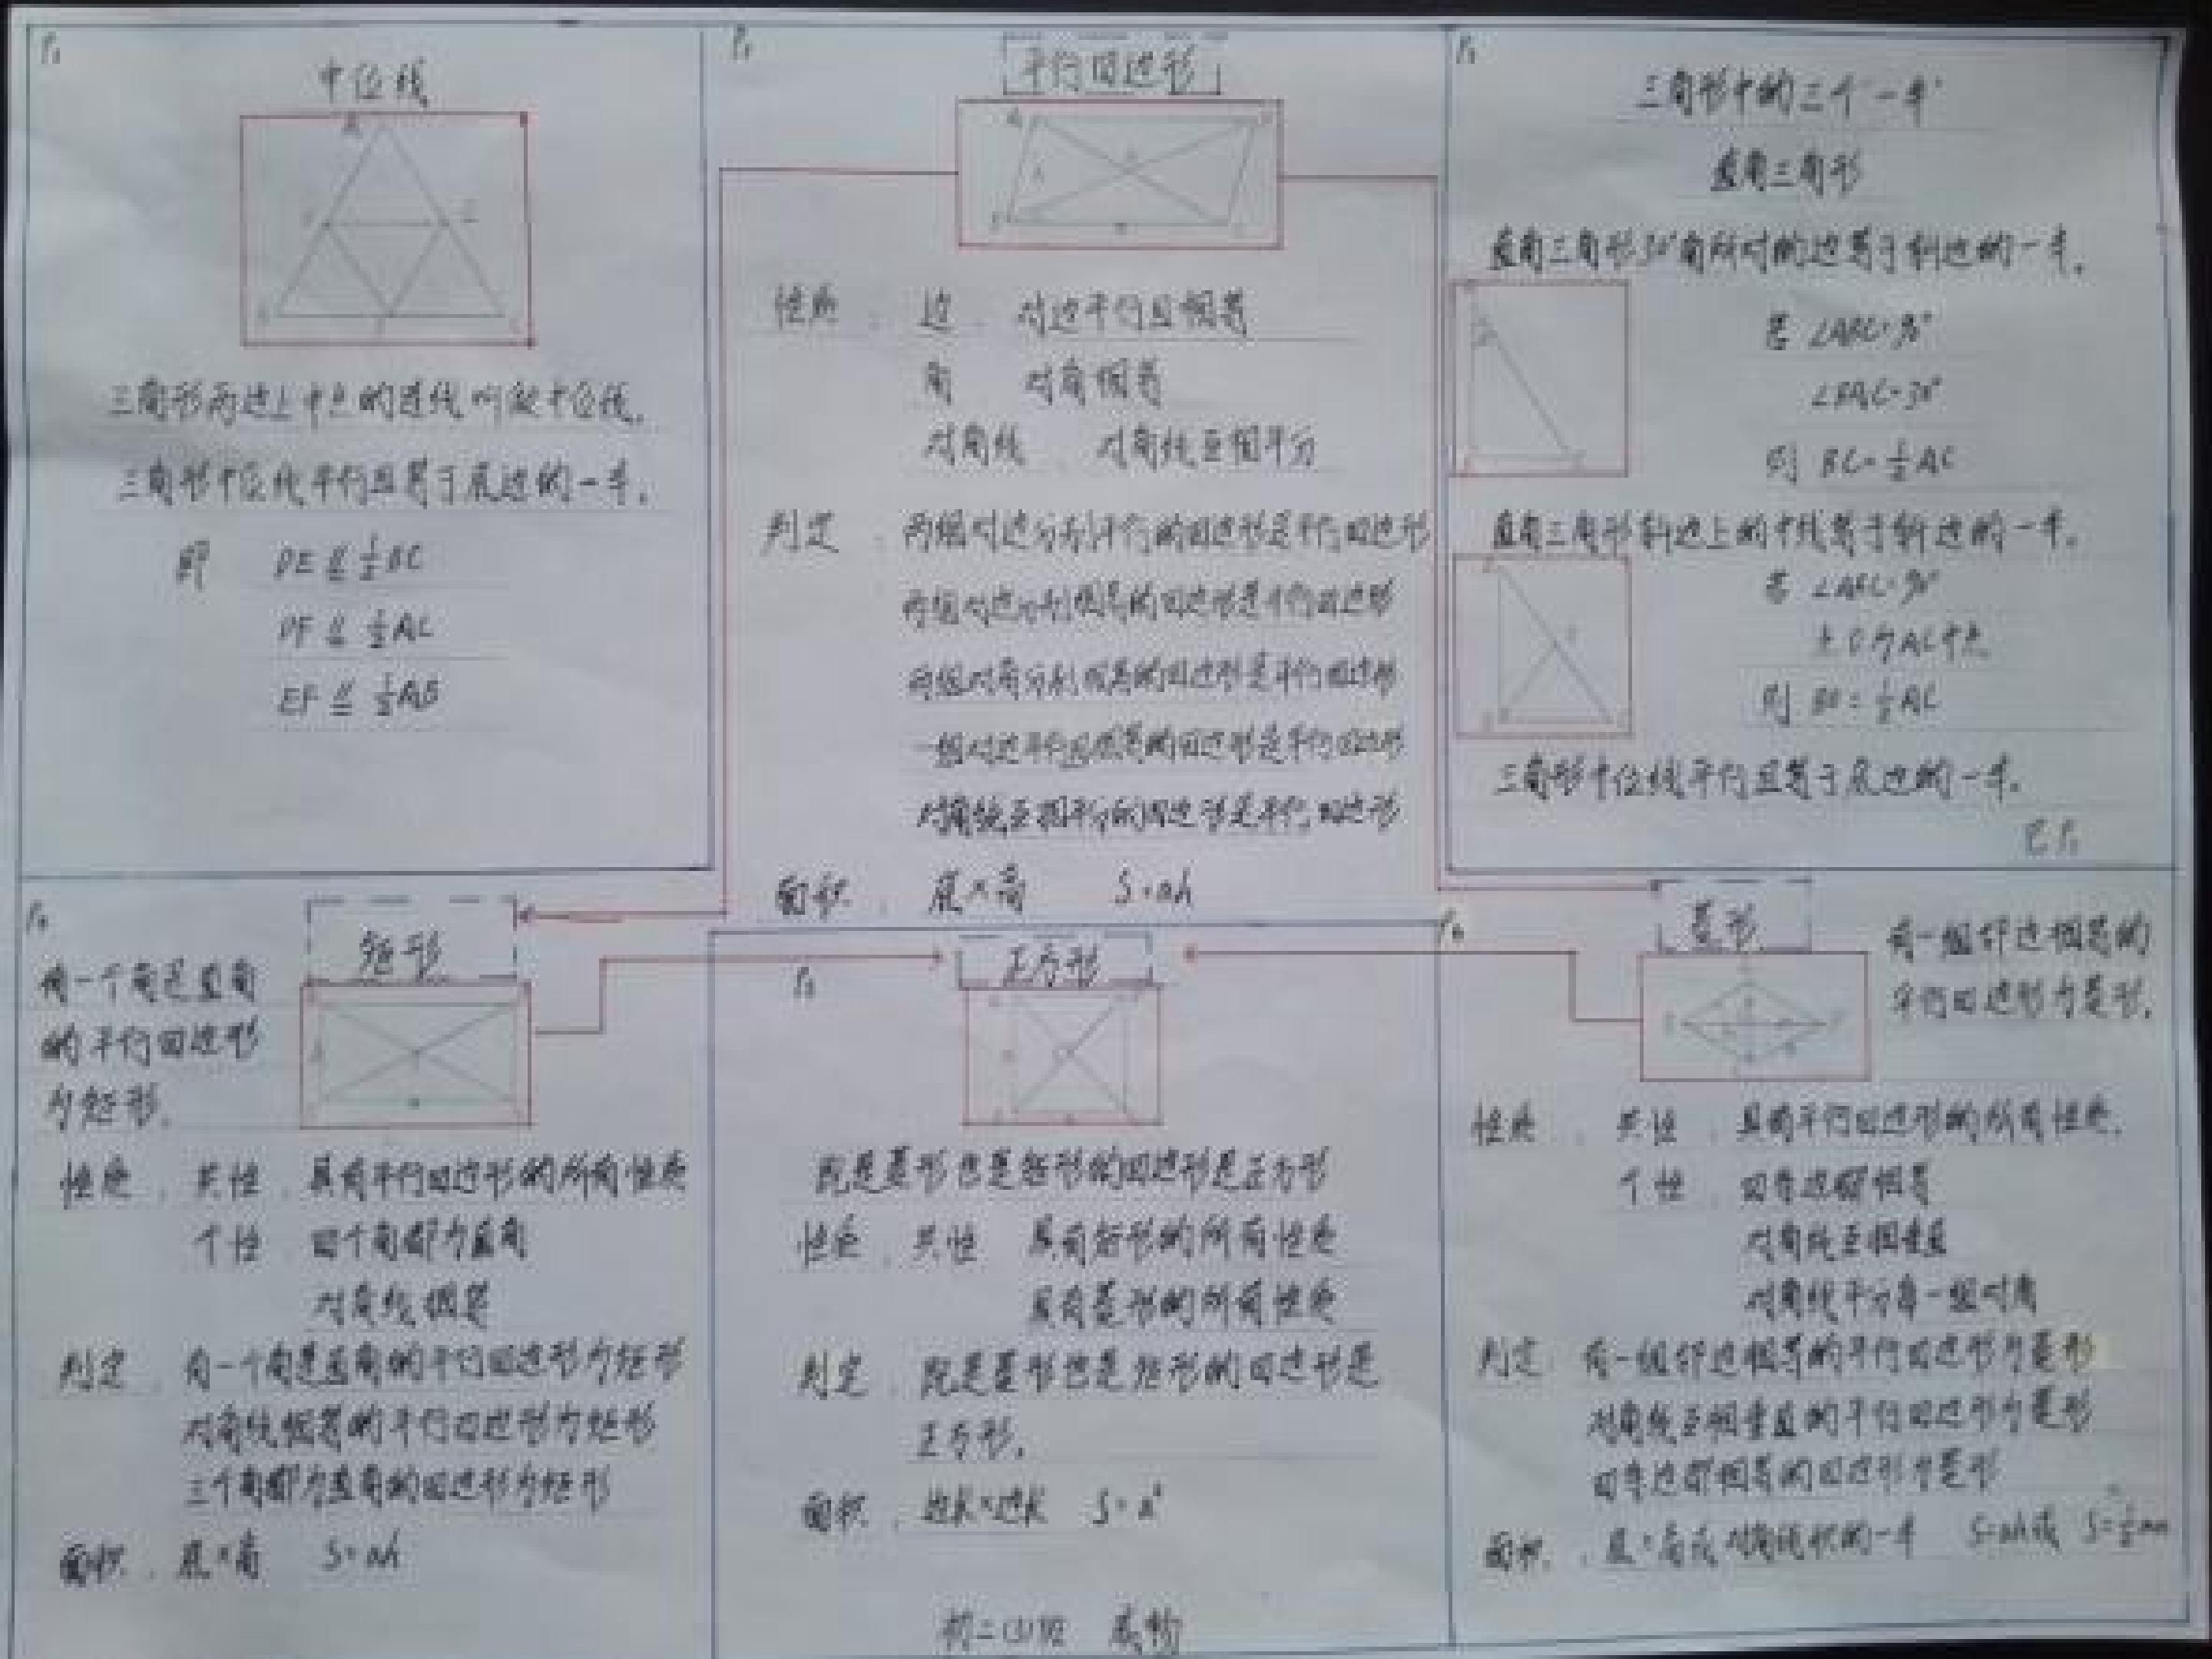 中位线
三角形两边上中点的连线叫做中位线。
三角形中位线平行且等于底边的一半。
即 DE ∥= 1/2 BC
DF ∥= 1/2 AC
EF ∥= 1/2 AB
平行四边形
性质: 边: 对边平行且相等
角 对角相等
对角线 对角线互相平分
判定: 两组对边分别平行的四边形是平行四边形
两组对边分别相等的四边形是平行四边形
两组对角分别相等的四边形是平行四边形
一组对边平行且相等的四边形是平行四边形
对角线互相平分的四边形是平行四边形
面积: 底×高 S=ah
三角形中的三个"一半"
直角三角形
直角三角形30°角所对的边等于斜边的一半。
若 ∠ABC=90°
∠BAC=30°
则 BC=1/2 AC
直角三角形斜边上的中线等于斜边的一半。
若 ∠ABC=90°
点O为AC中点
则 BO=1/2 AC
三角形中位线平行且等于底边的一半。
矩形
有一个角是直角
的平行四边形
为矩形。
性质: 共性: 具有平行四边形的所有性质
个性: 四个角都为直角
对角线相等
判定: 有一个角是直角的平行四边形为矩形
对角线相等的平行四边形为矩形
三个角都为直角的四边形为矩形
面积: 底×高 S=ah
正方形
既是菱形也是矩形的四边形是正方形
性质: 共性 具有矩形的所有性质
具有菱形的所有性质
判定: 既是菱形也是矩形的四边形是
正方形。
面积: 边长×边长 S=a²
初二(3)班
菱形
有一组邻边相等的
平行四边形为菱形。
性质: 共性: 具有平行四边形的所有性质。
个性: 四条边都相等
对角线互相垂直
对角线平分每一组对角
判定: 有一组邻边相等的平行四边形为菱形
对角线互相垂直的平行四边形为菱形
四条边都相等的四边形为菱形
面积: 底×高或对角线积的一半 S=ah或 S=1/2 mn